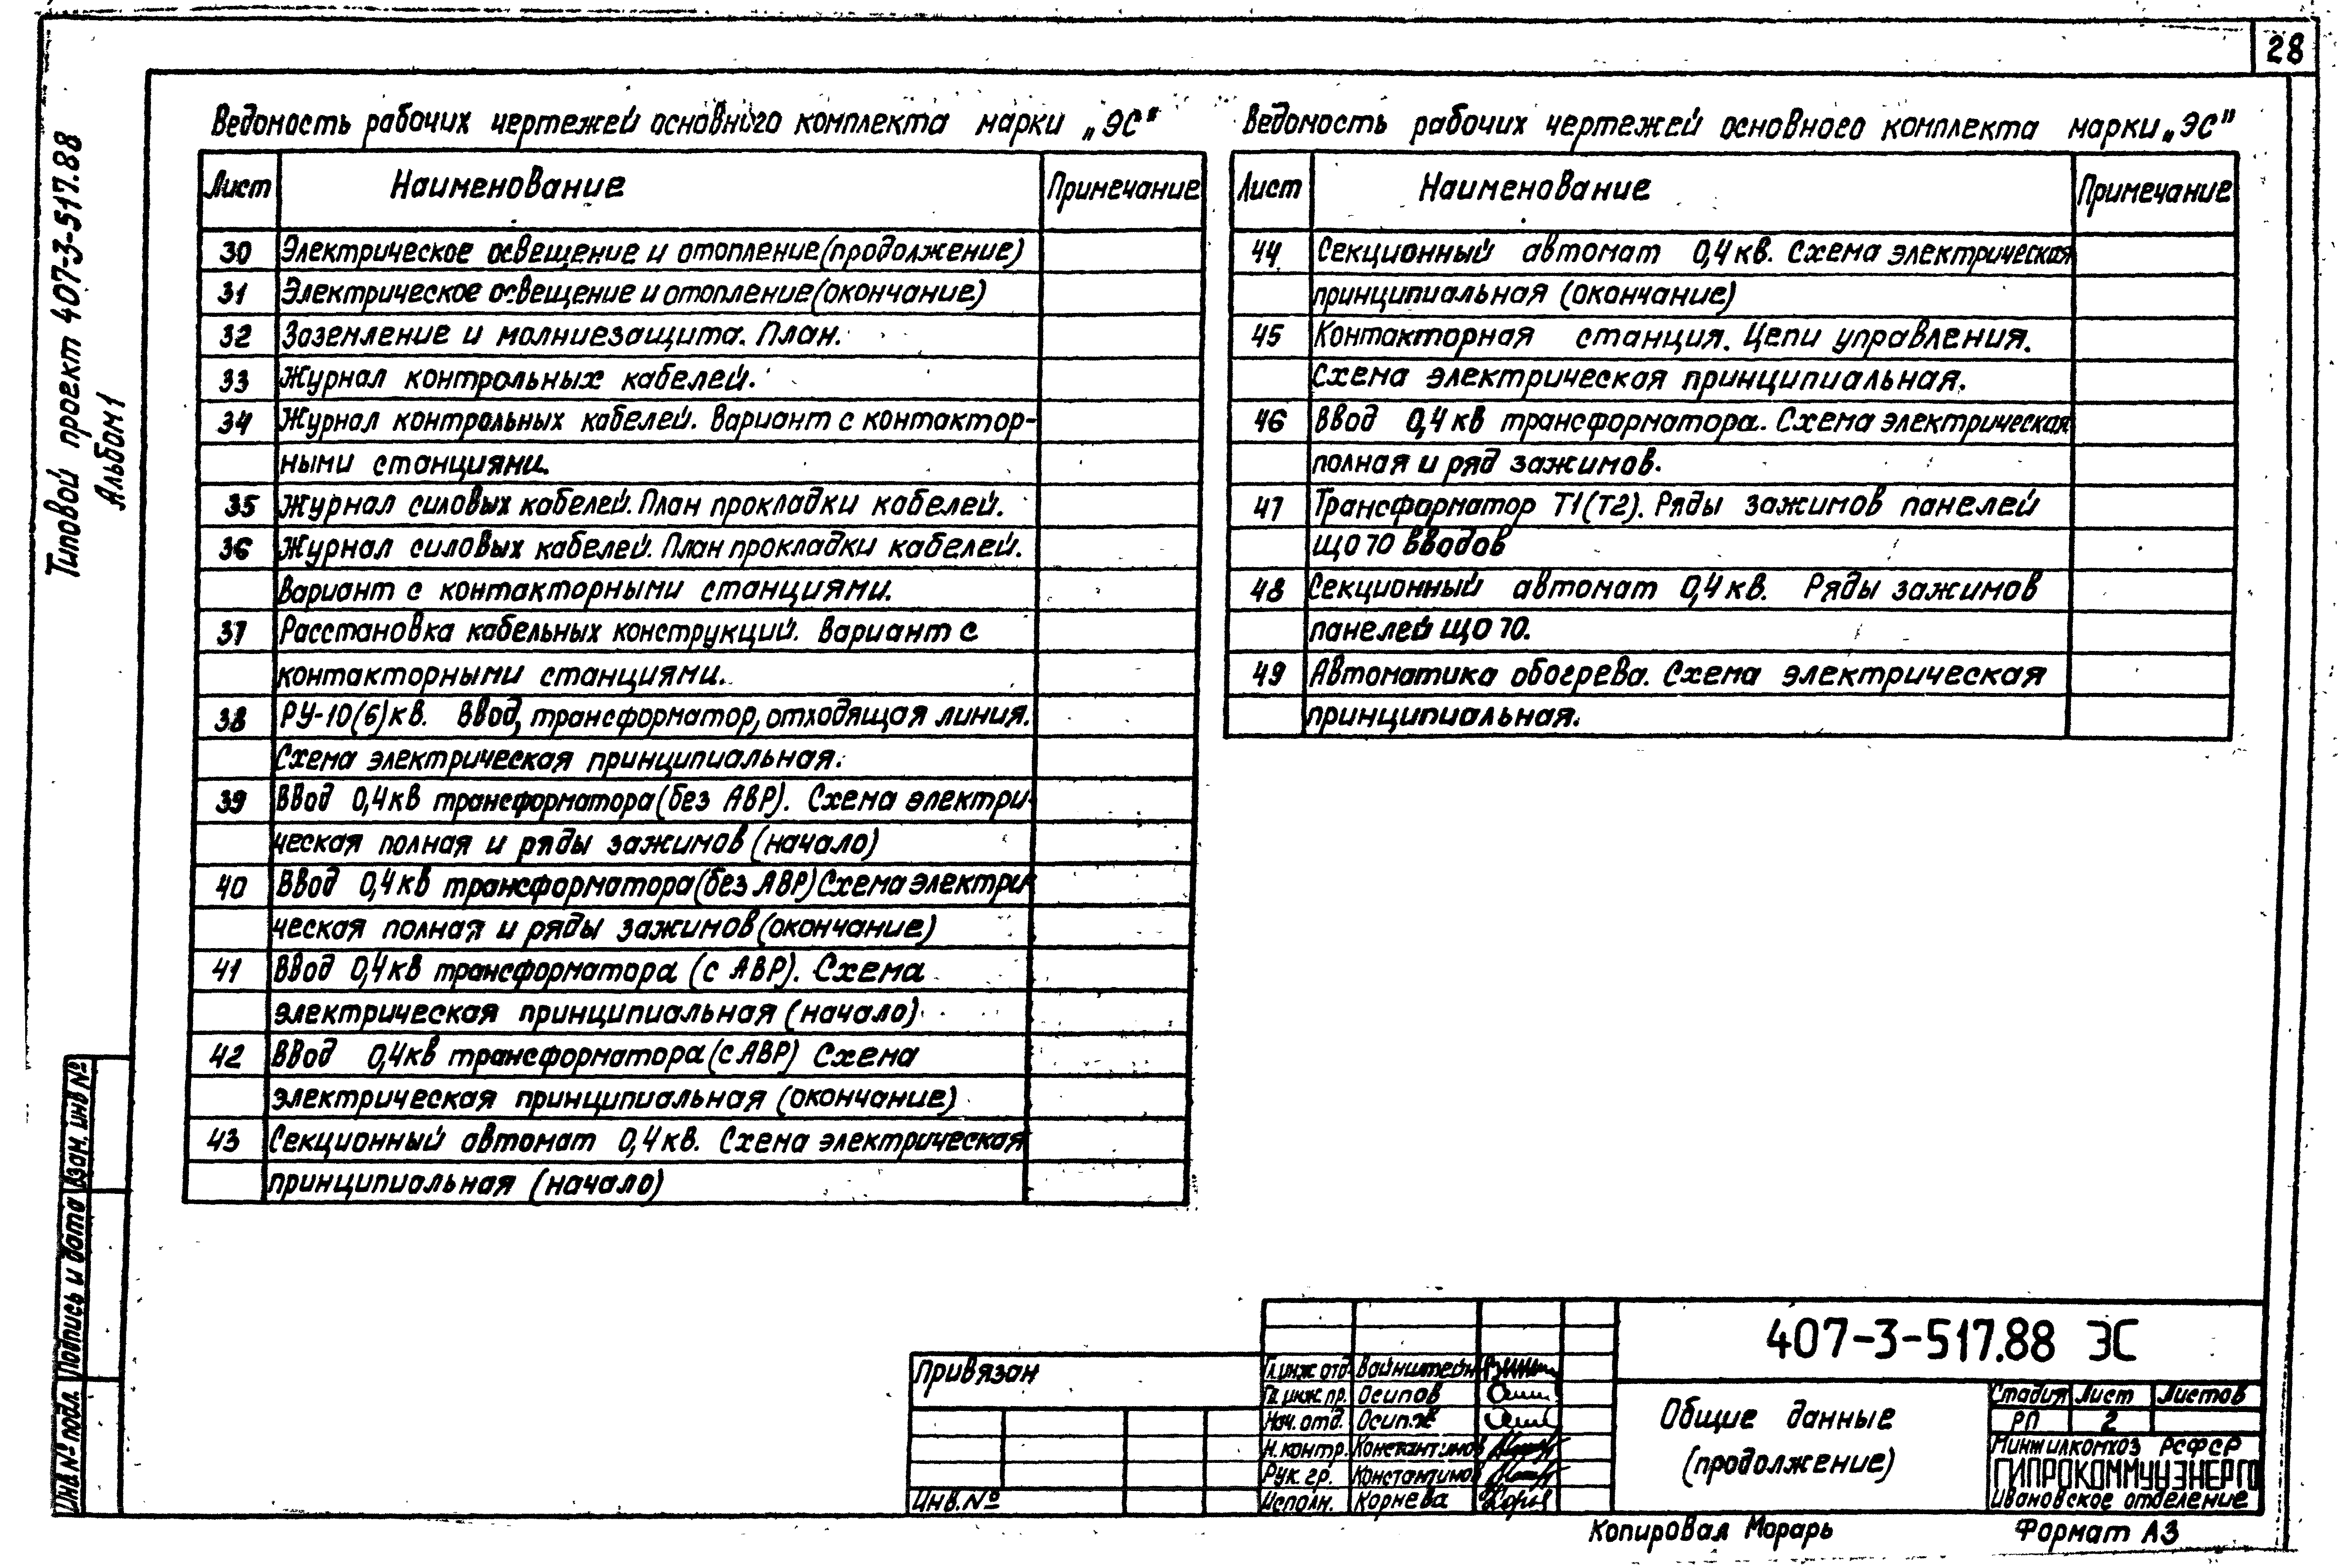 28
Типовой проект 407-3-517.88
Альбом 1
Ведомость рабочих чертежей основного комплекта марки „ЭС"
Лист Наименование Примечание
30 Электрическое освещение и отопление (продолжение)
31 Электрическое освещение и отопление (окончание)
32 Заземление и молниезащита. План.
33 Журнал контрольных кабелей.
34 Журнал контрольных кабелей. Вариант с контактор-
ными станциями.
35 Журнал силовых кабелей. План прокладки кабелей.
36 Журнал силовых кабелей. План прокладки кабелей.
Вариант с контакторными станциями.
37 Расстановка кабельных конструкций. Вариант с
контакторными станциями.
38 РУ-10(6)кв. Ввод, трансформатор, отходящая линия.
Схема электрическая принципиальная.
39 Ввод 0,4кв трансформатора (без АВР). Схема электри-
ческая полная и ряды зажимов (начало)
40 Ввод 0,4кв трансформатора (без АВР) Схема электри-
ческая полная и ряды зажимов (окончание)
41 Ввод 0,4кв трансформатора (с АВР). Схема
электрическая принципиальная (начало)
42 Ввод 0,4кв трансформатора (с АВР) Схема
электрическая принципиальная (окончание)
43 Секционный автомат 0,4кв. Схема электрическая
принципиальная (начало)
Ведомость рабочих чертежей основного комплекта марки „ЭС"
Лист Наименование Примечание
44 Секционный автомат 0,4кв. Схема электрическая
принципиальная (окончание)
45 Контакторная станция. Цепи управления.
Схема электрическая принципиальная.
46 Ввод 0,4кв трансформатора. Схема электрическая
полная и ряд зажимов.
47 Трансформатор Т1(Т2). Ряды зажимов панелей
ЩО70 вводов
48 Секционный автомат 0,4кв. Ряды зажимов
панелей ЩО70.
49 Автоматика обогрева. Схема электрическая
принципиальная.
Взам. инв №
Подпись и дата
Инв № подл.
Привязан
Инв. №
Гл.инж. отд. Вайнштейн
Гл. инж. пр. Осипов
Нач. отд. Осипов
Н. контр. Константинов
Рук. гр. Константинов
Исполн. Корнева
407-3-517.88 ЭС
Общие данные
(продолжение)
Стадия Лист Листов
РП 2
Минжилкомхоз РСФСР
ГИПРОКОММУНЭНЕРГО
Ивановское отделение
Копировал Морарь Формат А3